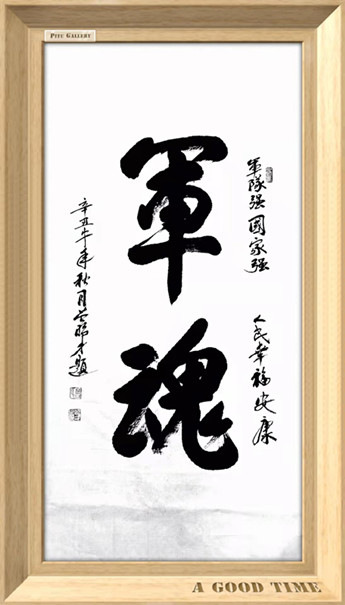 PITU GALLERY
军隊强国家强 人民幸福安康
軍魂
辛丑牛年秋月 題
A GOOD TIME